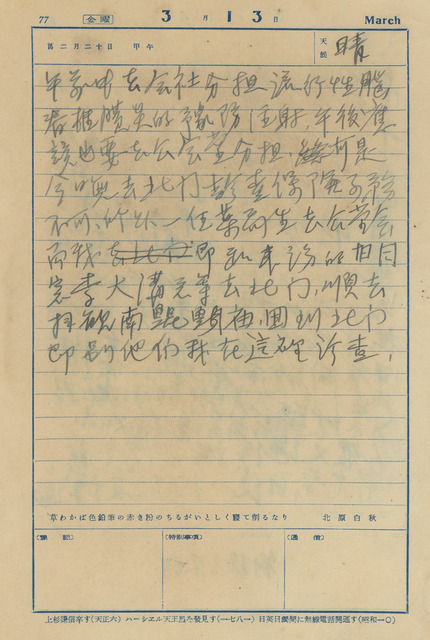 77 金曜 3月13日 March
舊二月二十日 甲午 天候 晴
午前中去会社分担流行性脳
脊髄膜炎的予防注射,午後應
該也要去公会堂分担,
今晚去北门 查保险
不可,所以一任葉 生去公会堂
而我 即和来訪的旧同
窓李大溝 去北门,順去
拝観南鯤鯓廟,回到北门
即别他们我在這裡診查,
草わかば色鉛筆の赤き粉のちるがいとしく寝て削るなり 北原白秋
〔豫記〕 〔特別事項〕 〔通信〕
上杉謙信卒す(天正六) ハーシエル天王星を發見す(一七八一) 日英日獨間に無線電話開通す(昭和一〇)